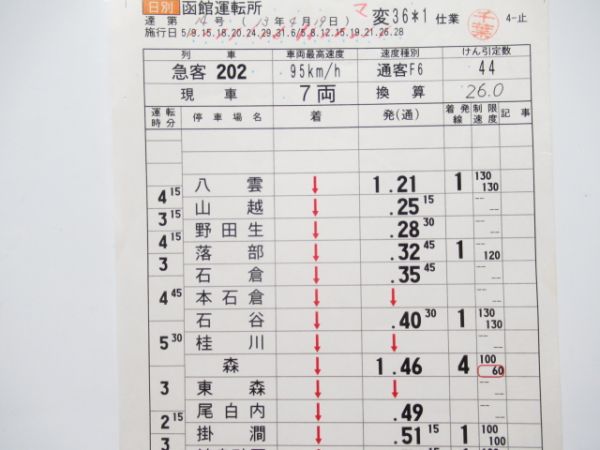 日別 函館運転所
達 第 14 号 ( 13 年 4 月 19 日 ) マ 変36*1 仕業 千葉 4-止
施行日 5/9.15.18.20.24.29.31. 6/2.5.8.12.15.16.19.21.26.28
列車 車両最高速度 速度種別 けん引定数
急客 202 95km/h 通客F6 44
現車 7両 換算 26.0
運転時分 停車場名 着 発(通) 着発線 制限速度 記事
八雲 ↓ 1.21 1 130 130
4 15
山越 ↓ .25 15 -- --
3 15
野田生 ↓ .28 30 -- --
4 15
落部 ↓ .32 45 1 -- 120
3
石倉 ↓ .35 45 -- --
本石倉 ↓ ↓ -- --
4 45
石谷 ↓ .40 30 1 130 130
桂川 ↓ ↓ -- --
5 30
森 ↓ 1.46 4 100 60
東森 ↓ ↓ -- --
3
尾白内 ↓ .49 -- --
2 15
掛澗 ↓ .51 15 1 100 100
3